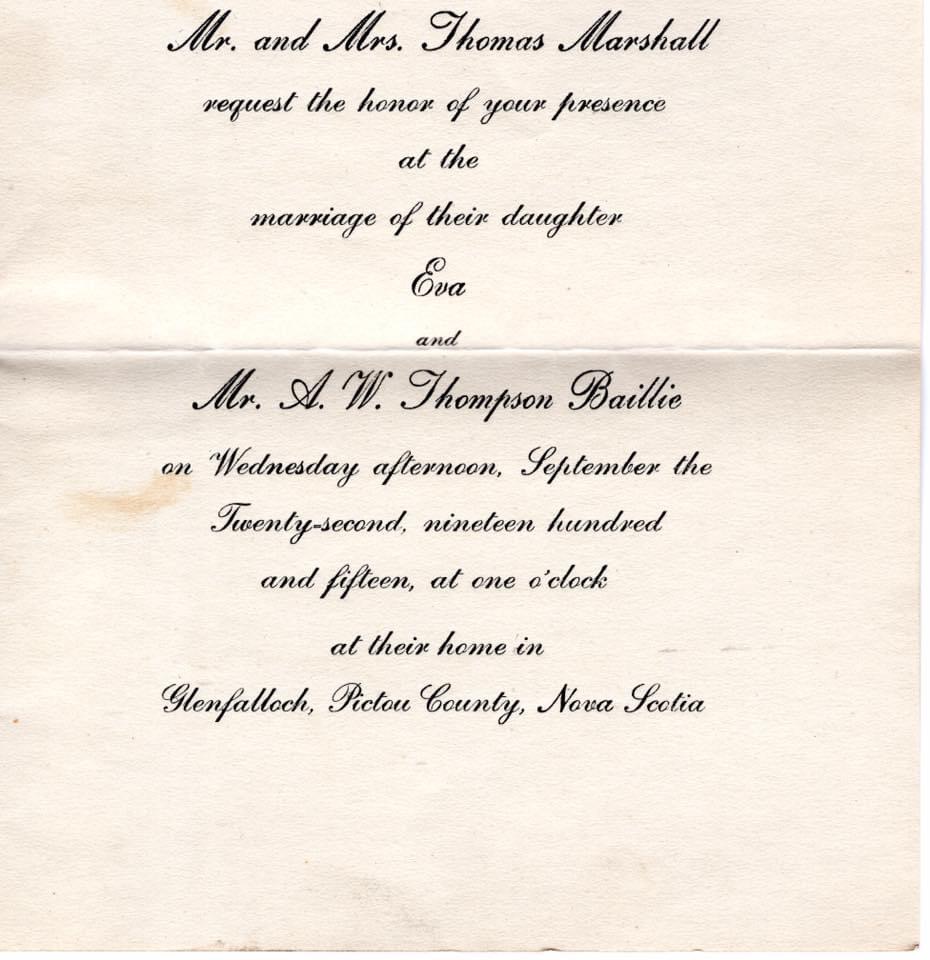 Mr. and Mrs. Thomas Marshall
request the honor of your presence
at the
marriage of their daughter
Eva
and
Mr. A. W. Thompson Baillie
on Wednesday afternoon, September the
Twenty-second, nineteen hundred
and fifteen, at one o'clock
at their home in
Glenfalloch, Pictou County, Nova Scotia